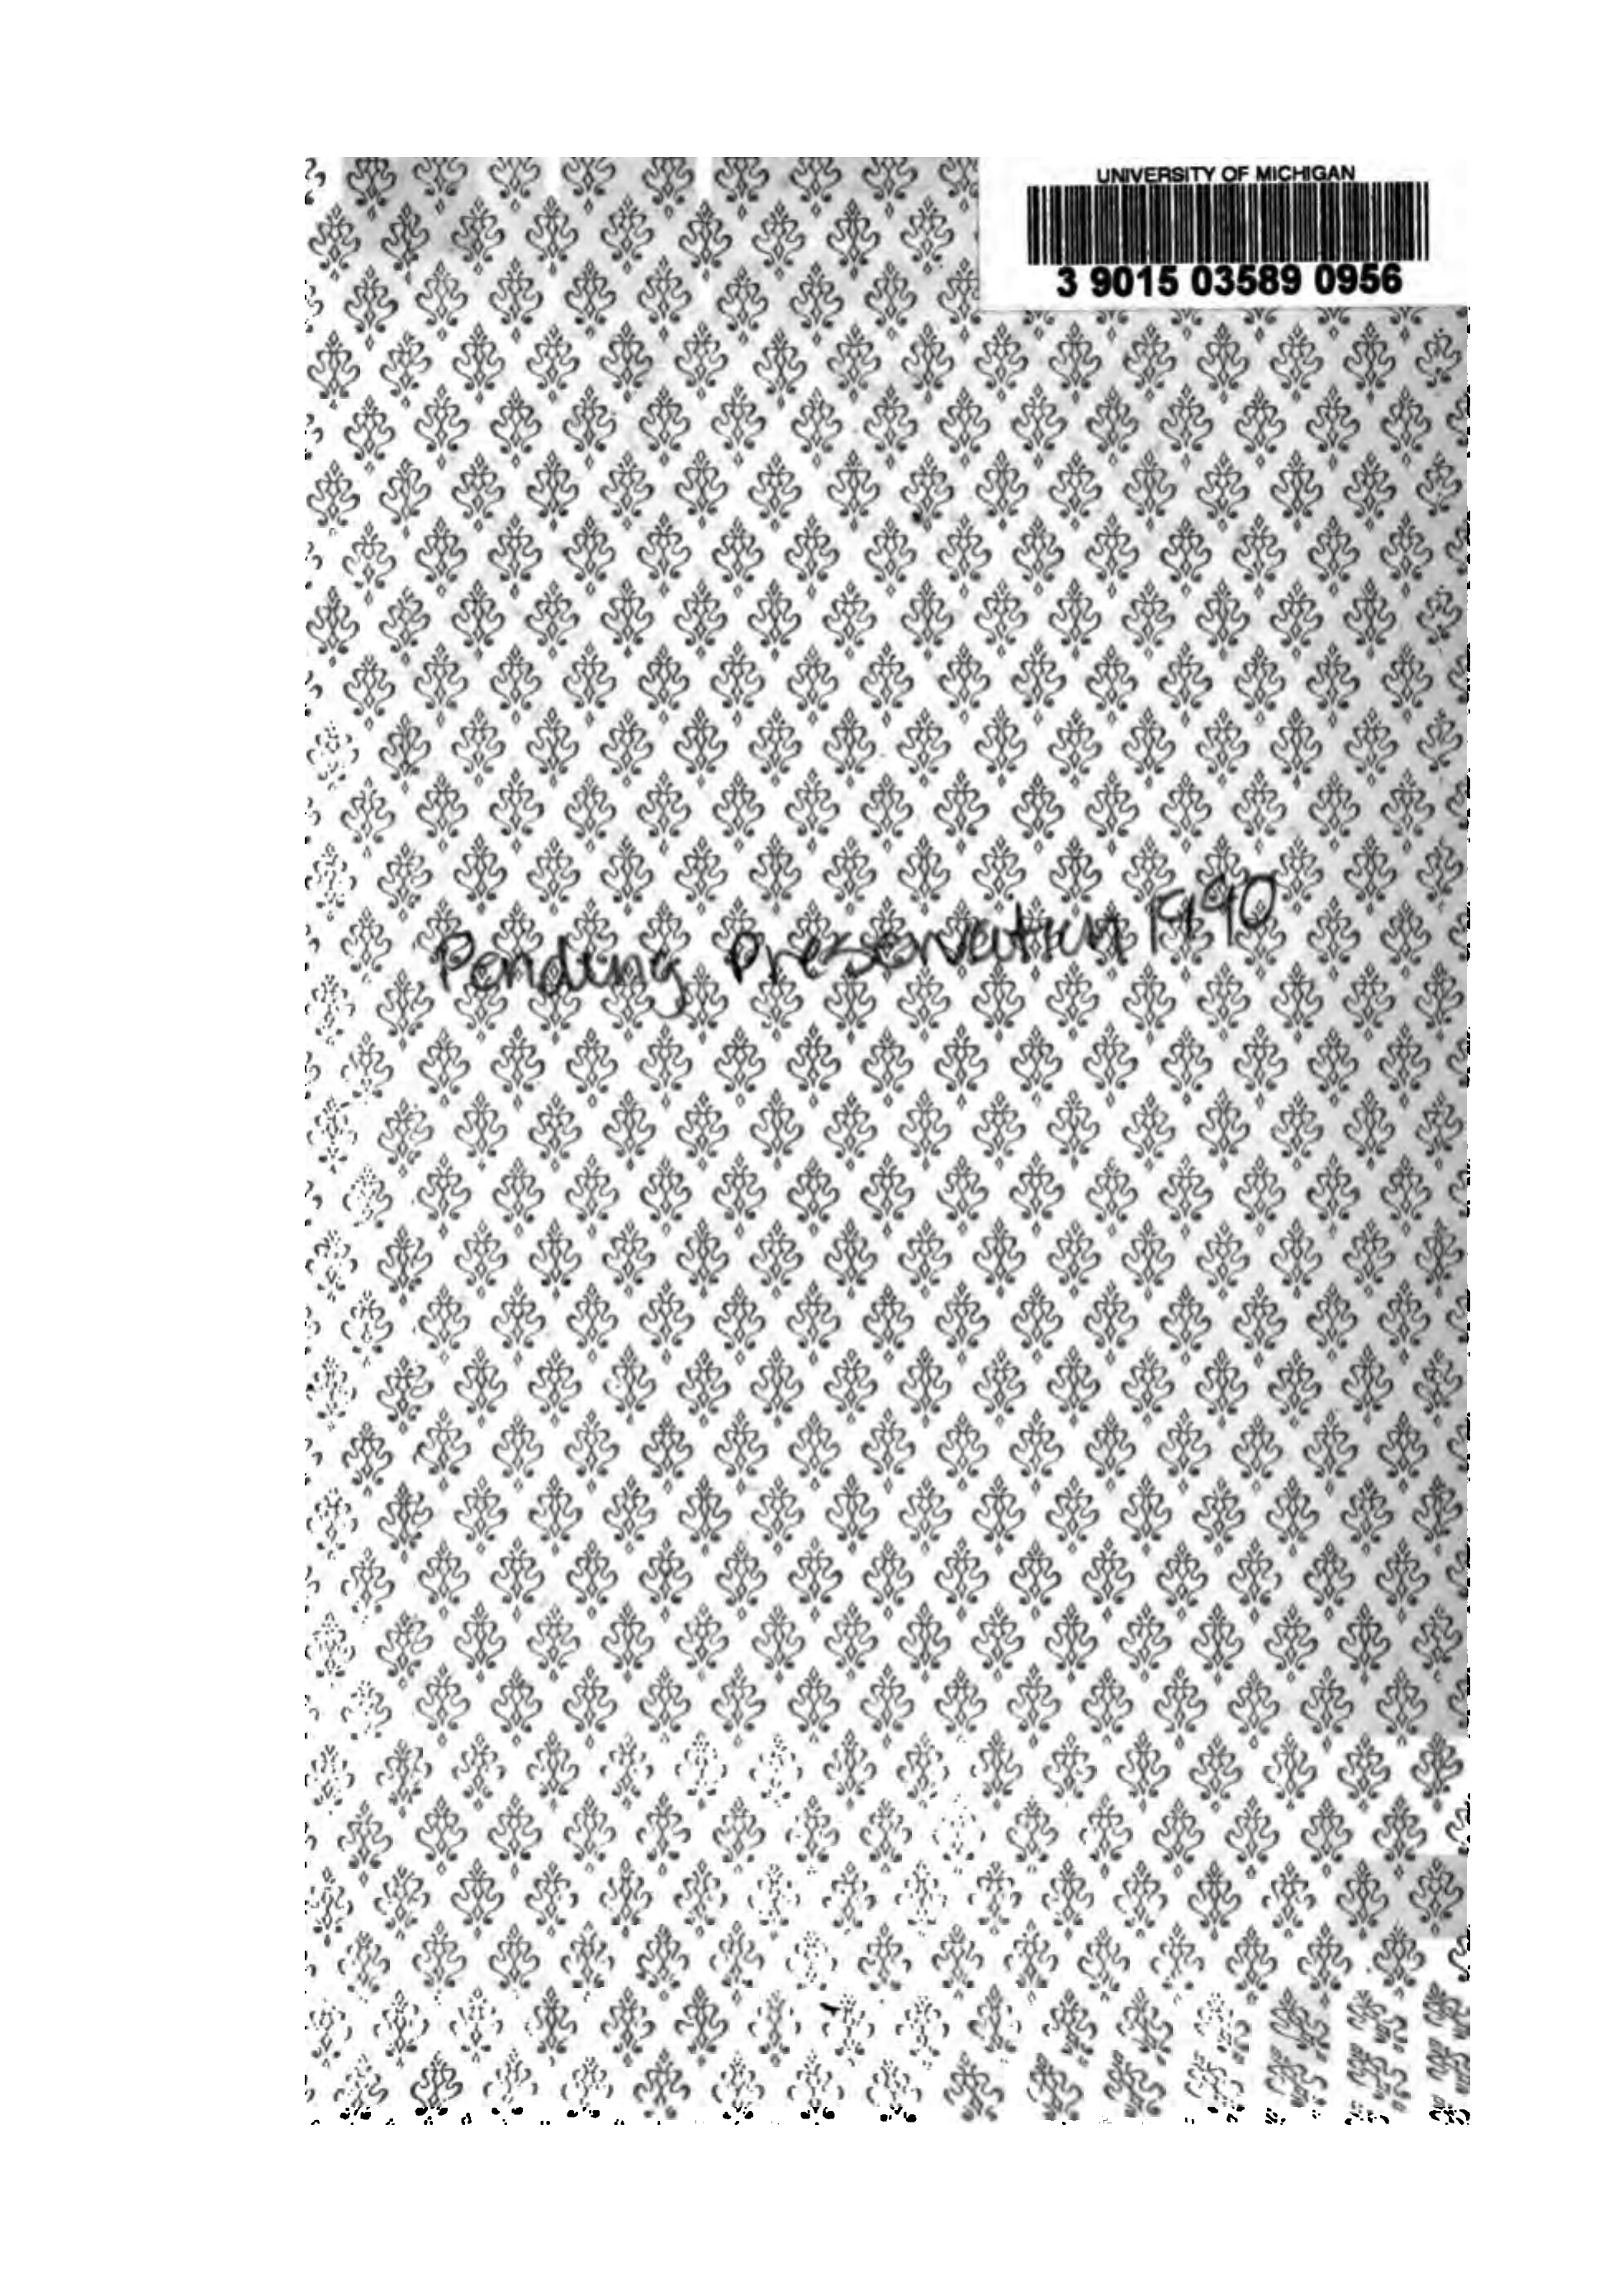 UNIVERSITY OF MICHIGAN
3 9015 03589 0956
Pending Preservation 1990